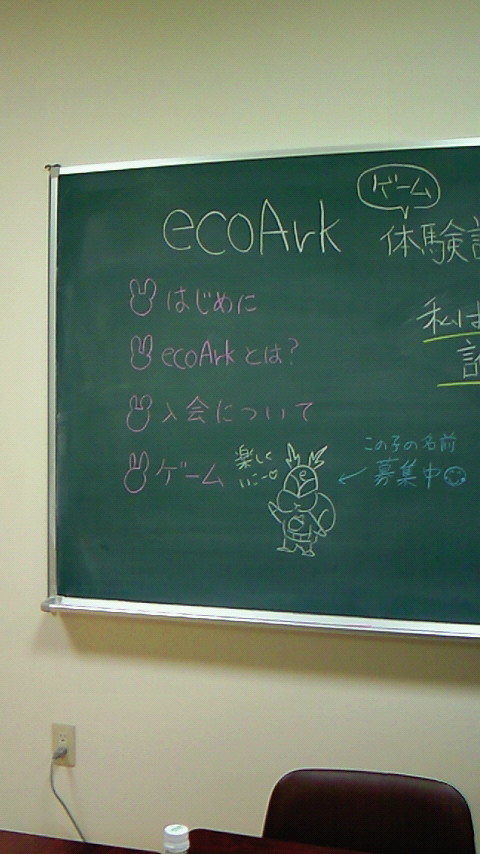 ecoArk
ゲーム
体験
私は
はじめに
ecoArkとは?
入会について
ゲーム
楽しく
いこー♡
この子の名前
募集中